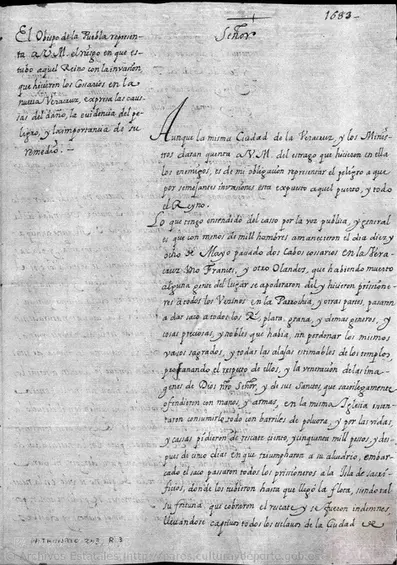 1683
Señor
El Obispo de la Puebla represen-
ta a V.M. el riesgo en que es-
tubo aquel Reino con la invasion
que hicieron los Cosarios en la
nueva Veracruz, expresa las cau-
sas del daño, la evidencia del pe-
ligro, y la importancia de su
remedio.
Aunque la misma Ciudad de la Veracruz y los Minis-
tros daran quenta a V.M. del estrago que hicieron en ella
los enemigos, es de mi obligacion representar el peligro a que
por semejantes invasiones esta expuesto aquel puerto, y todo
el Reyno.
Lo que tengo entendido del casso por la voz publica, y general
es que con menos de mill hombres amanecieron el dia diez y
ocho de Mayo passado dos Cabos cossarios en la Vera-
cruz Vno Frances, y otro Olandes, que habiendo muerto
alguna gente del lugar se apoderaron del y hicieron prissione-
ros a todos los Vezinos en la Parrochia, y otras partes, passaron
a dar saco a todos los R. plata, grana, y demas generos, y
cosas preciosas, y nobles que havia, sin perdonar los mismos
vasos sagrados, y todas las alajas estimables de los templos,
profanando el respecto de ellos, y la veneracion de las ima-
genes de Dios nro Señor, y de sus Santos, que sacrilegamente
ofendieron con manos, y armas, en la misma Iglesia inten-
taron consumirlo todo con barriles de polvora, y por las vidas
y casas pidieron de rescate ciento, y cinquenta mill pessos, y des-
pues de cinco dias en que triumpharon a su alvedrio, embar-
cado el saco passaron todos los prissioneros a la Isla de sacri-
ficios, donde los tubieron hasta que llegó la flota, siendo tal
su fortuna que cobraron el rescate y se fueron indemnes
llevandose captivos todos los esclavos de la Ciudad